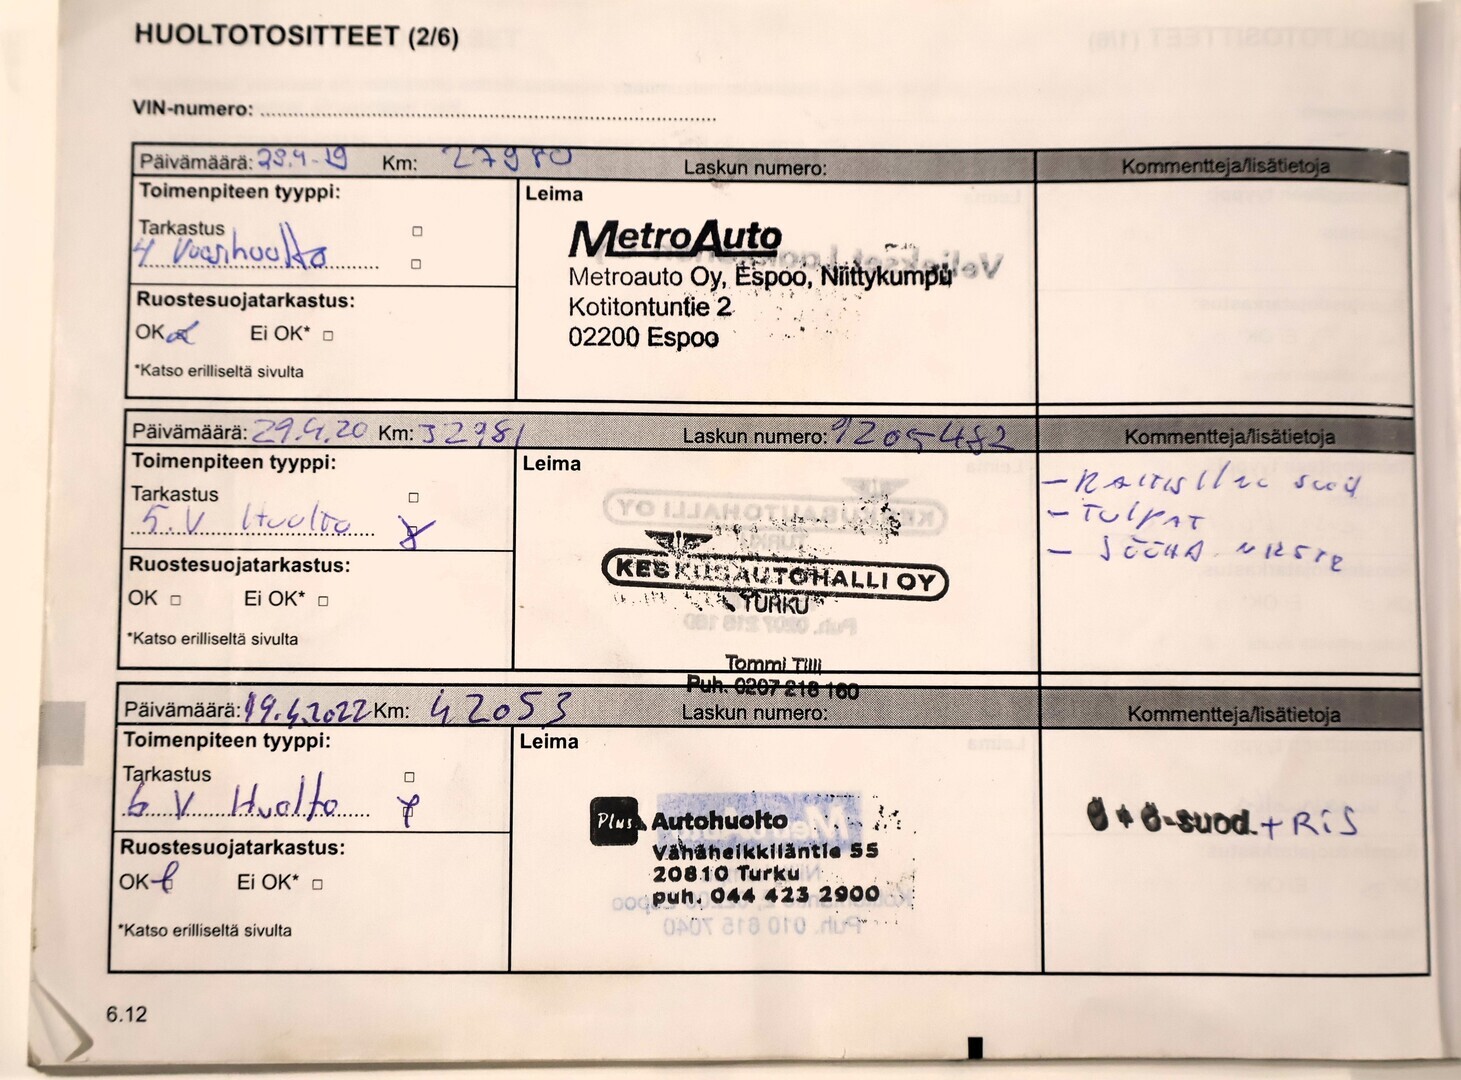 HUOLTOTOSITTEET (2/6)
VIN-numero:
Päivämäärä: 29.4-19 Km: 27980 Laskun numero: Kommentteja/lisätietoja
Toimenpiteen tyyppi:
Leima
Tarkastus
4 Vuosihuolto
Ruostesuojatarkastus:
OK Ei OK*
*Katso erilliseltä sivulta
MetroAuto
Metroauto Oy, Espoo, Niittykumpu
Kotitontuntie 2
02200 Espoo
Päivämäärä: 29.4.20 Km: 32981 Laskun numero: 9205482 Kommentteja/lisätietoja
Toimenpiteen tyyppi:
Leima
Tarkastus
5. V Huolto
Ruostesuojatarkastus:
OK Ei OK*
*Katso erilliseltä sivulta
KESKUSAUTOHALLI OY
TURKU
Tommi Tilli
Puh. 0207 218 160
- TULPAT
Päivämäärä: 19.4.2022 Km: 42053 Laskun numero: Kommentteja/lisätietoja
Toimenpiteen tyyppi:
Leima
Tarkastus
6 V Huolto
Ruostesuojatarkastus:
OK Ei OK*
*Katso erilliseltä sivulta
Plus Autohuolto
Vähäheikkiläntie 55
20810 Turku
puh. 044 423 2900
Ö + Ö-suod. + RiS
6.12